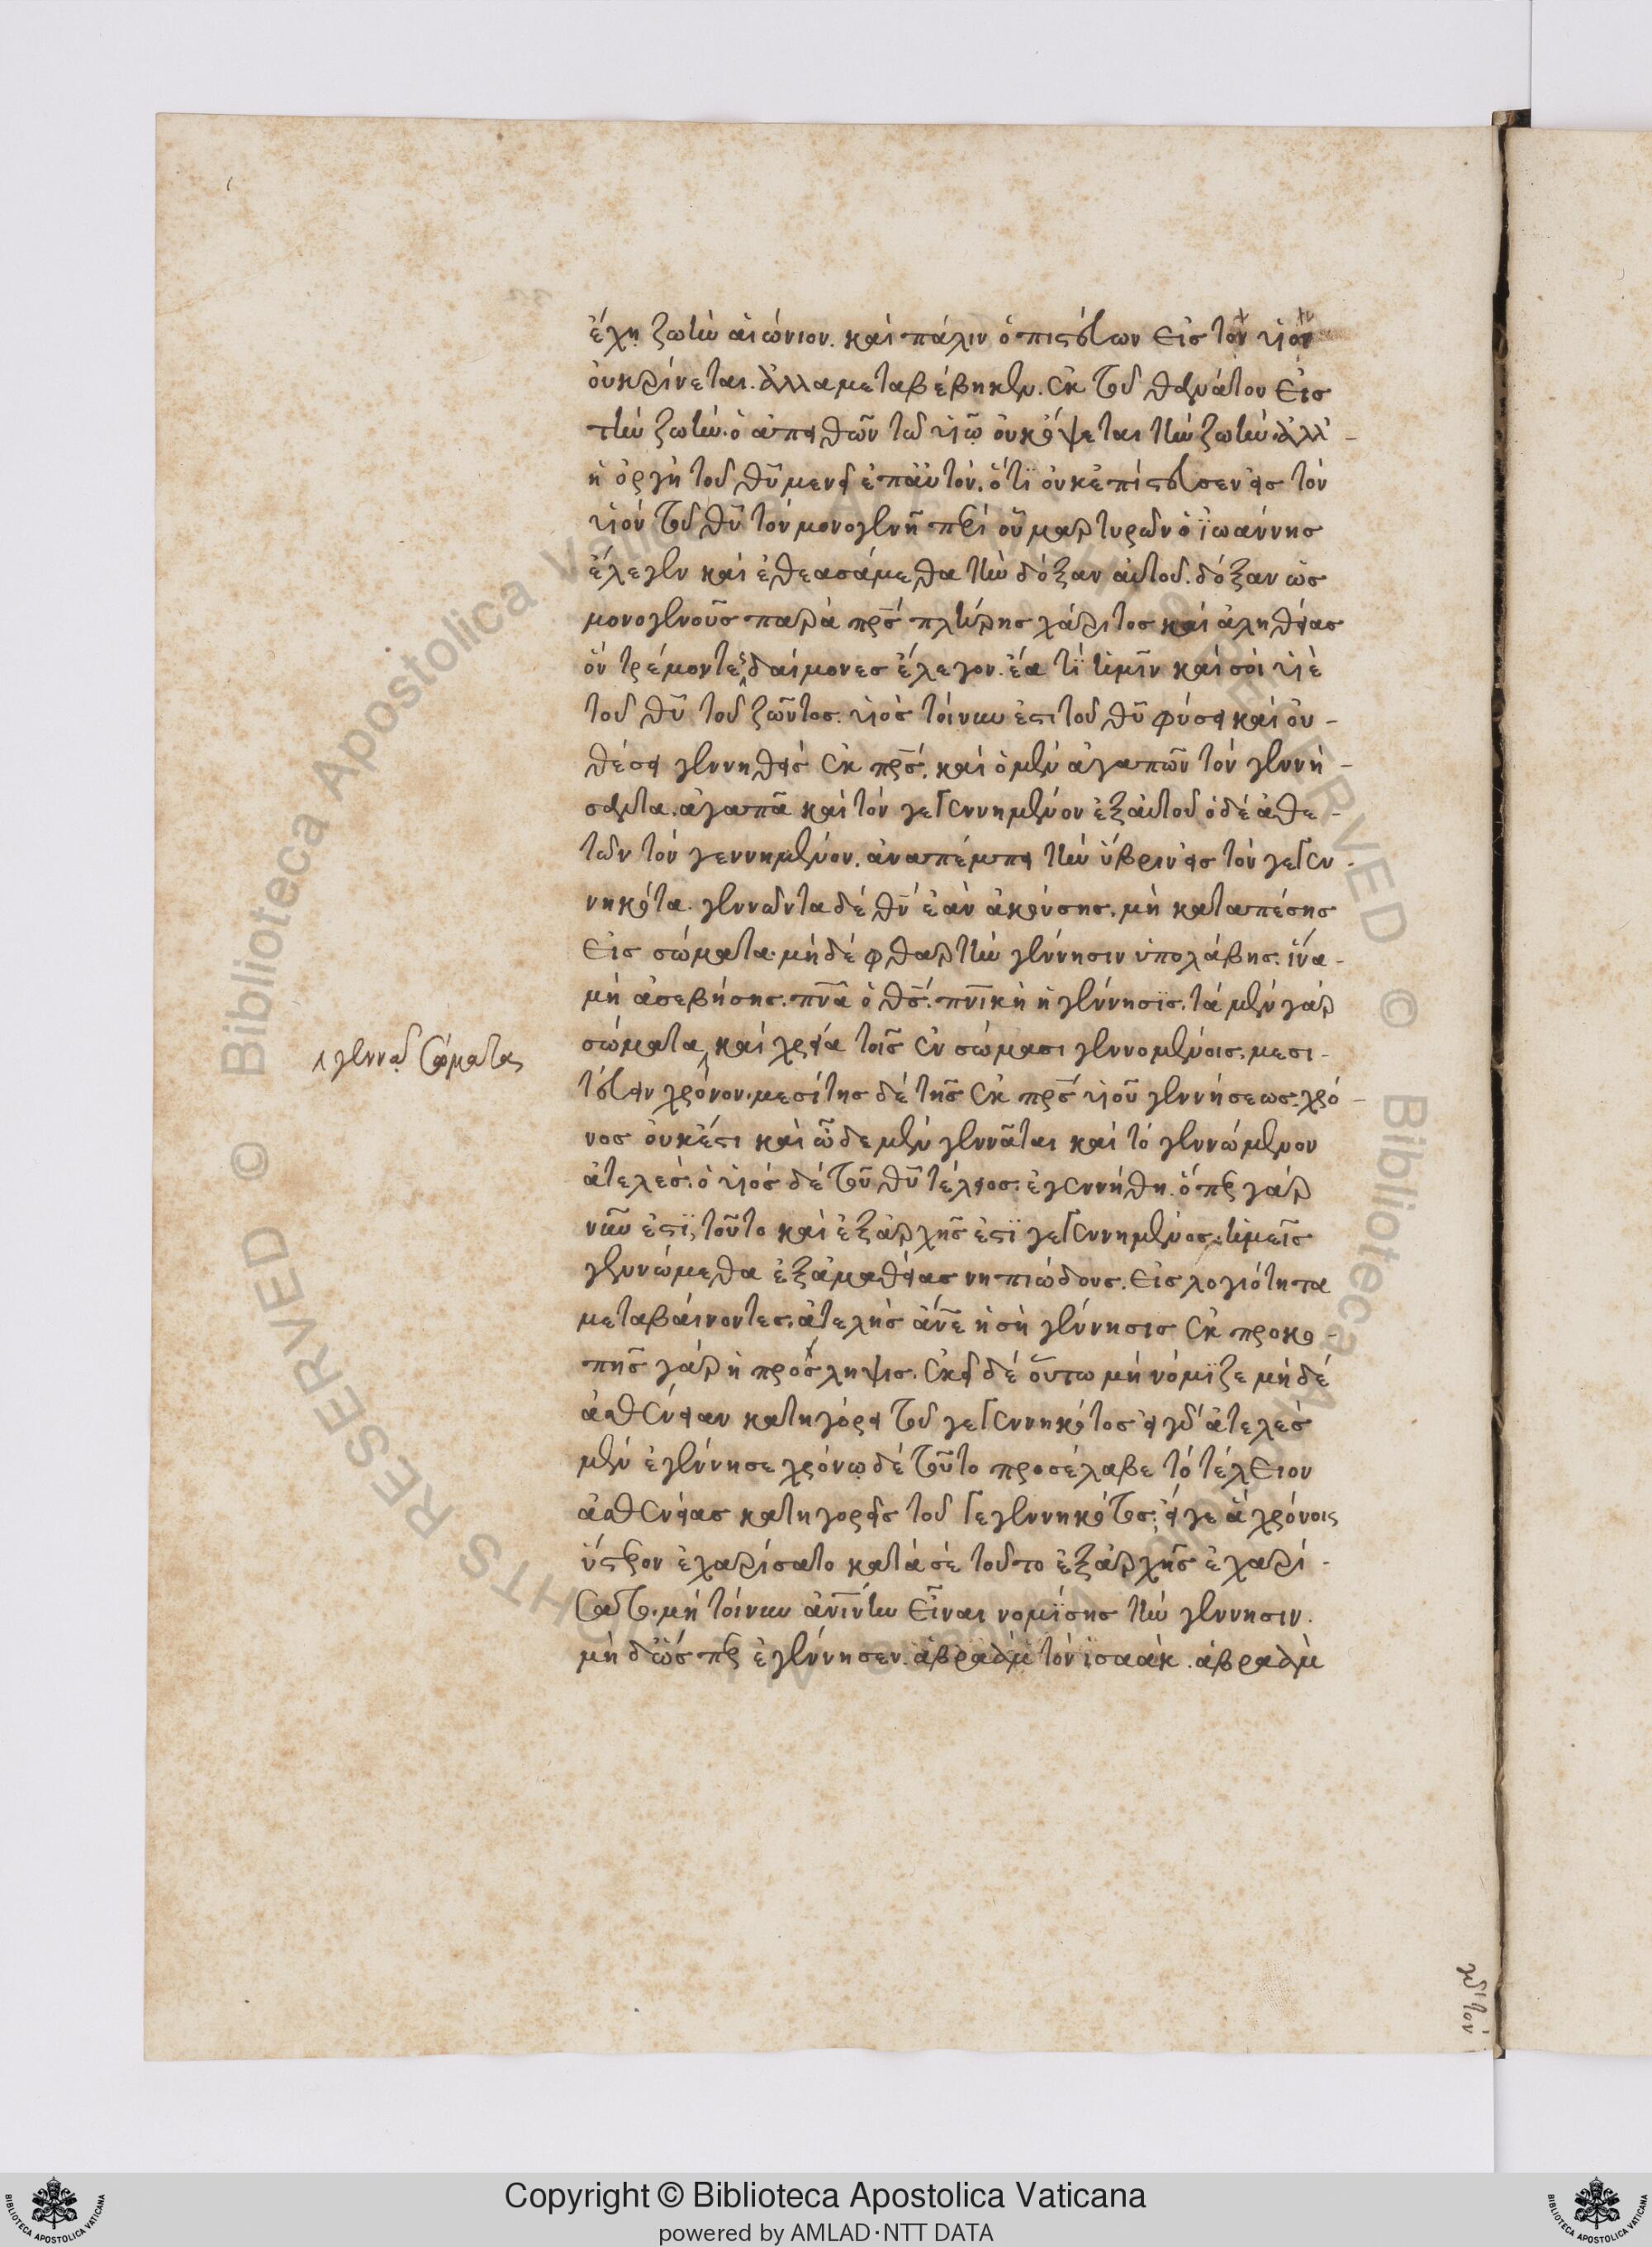 ἔχῃ ζωὴν αἰώνιον. καὶ πάλιν ὁ πιστεύων εἰς τὸν υἱὸν
οὐ κρίνεται. ἀλλα μεταβέβηκεν. ἐκ τοῦ θανάτου εἰς
τὴν ζωήν. ὁ ἀπειθῶν τῷ υἱῷ οὐκ όψεται τὴν ζωὴν. ἀλλ' -
ἡ ὀργὴ τοῦ θῦ μενεῖ ἐπ αὐτόν. ὅτϊ οὐκ ἐπίστευσεν εἰς τὸν
υἱὸν τοῦ θῦ τὸν μονογενῆ περὶ οὗ μαρτυρῶν ὁ ϊωάννης
ἔλεγεν καὶ ἐθεασάμεθα τὴν δόξαν αὐτοῦ. δόξαν ὡς
μονογενοῦς παρὰ πρς πλήρης χάριτος καὶ ἀληθείας
ὃν τρέμοντες δαίμονες ἔλεγον. ἔα τϊ ἡμῖν καὶ σοὶ υἱὲ
τοῦ θῦ τοῦ ζῶντος. υἱὸς τοίνυν ἐστι τοῦ θῦ φύσει καὶ οὐ -
θέσει γεννηθεὶς ἐκ πρς. καὶ ὁ μὲν ἀγαπῶν τὸν γεννή -
σαντα. ἀγαπᾶ καὶ τὸν γεγεννημένον ἐξ αὐτοῦ ὁ δὲ ἀθε -
τῶν τὸν γεννημένον. ἀναπέμπει τὴν ὕβριν εἰς τὸν γεγεν -
νηκότα. γεννῶντα δὲ θν ἐὰν ἀκούσης. μὴ καταπέσης
εἰς σώματα. μὴ δὲ φθαρτὴν γέννησιν ὑπολάβης. ἵνα -
μὴ ἀσεβήσης. πνα ὁ θς. πνικὴ ἡ γέννησϊς. τὰ μὲν γὰρ
σώματα καὶ χρεία τοῖς ἐν σώμασι γεννομένοις. μεσι -
τεύειν χρόνον. μεσίτης δὲ τῆς ἐκ πρς υἱοῦ γεννήσεως. χρό -
νος οὐκ ἔστι καὶ ὧδε μὲν γεννᾶται καὶ τὸ γεννώμενον
ἀτελές. ὁ υἱὸς δὲ τοῦ θῦ τέλειος. ἐγεννήθη. ὅπερ γὰρ
νῦν ἐστϊ, τοῦτο καὶ ἐξ ἀρχῆς ἐστϊ γεγεννημένος. ἡμεῖς
γεννώμεθα ἐξ ἀμαθείας νηπιώδους. εἰς λογιότητα
μεταβαίνοντες. ἀτελὴς ἄνε ἡ σὴ γέννησις ἐκ προκο -
πῆς γὰρ ἡ πρόσληψις. ἐκεῖ δὲ οὕτω μὴ νόμϊζε μὴ δὲ
ἀσθένειαν κατηγόρει τοῦ γεγεννηκότος εἰ γὰρ ἀτελὲς
μὲν ἐγέννησε χρόνῳ δὲ τοῦτο προσέλαβε τὸ τέλειον
ἀσθενείας κατηγορεῖς τοῦ γεγεννηκότος, εἴ γε ἃ χρόνοις
ὕστερον ἐχαρίσατο κατὰ σὲ τοῦτο ἐξ ἀρχῆς ἐχαρί -
σατο. μὴ τοίνυν ἀνίνην εἶναι νομίσης τὴν γέννησιν.
μὴ δ' ὥσπερ ἐγέννησεν. ἀβραὰμ τὸν ἰσαάκ. ἀβραὰμ
γεννᾶ σώματα